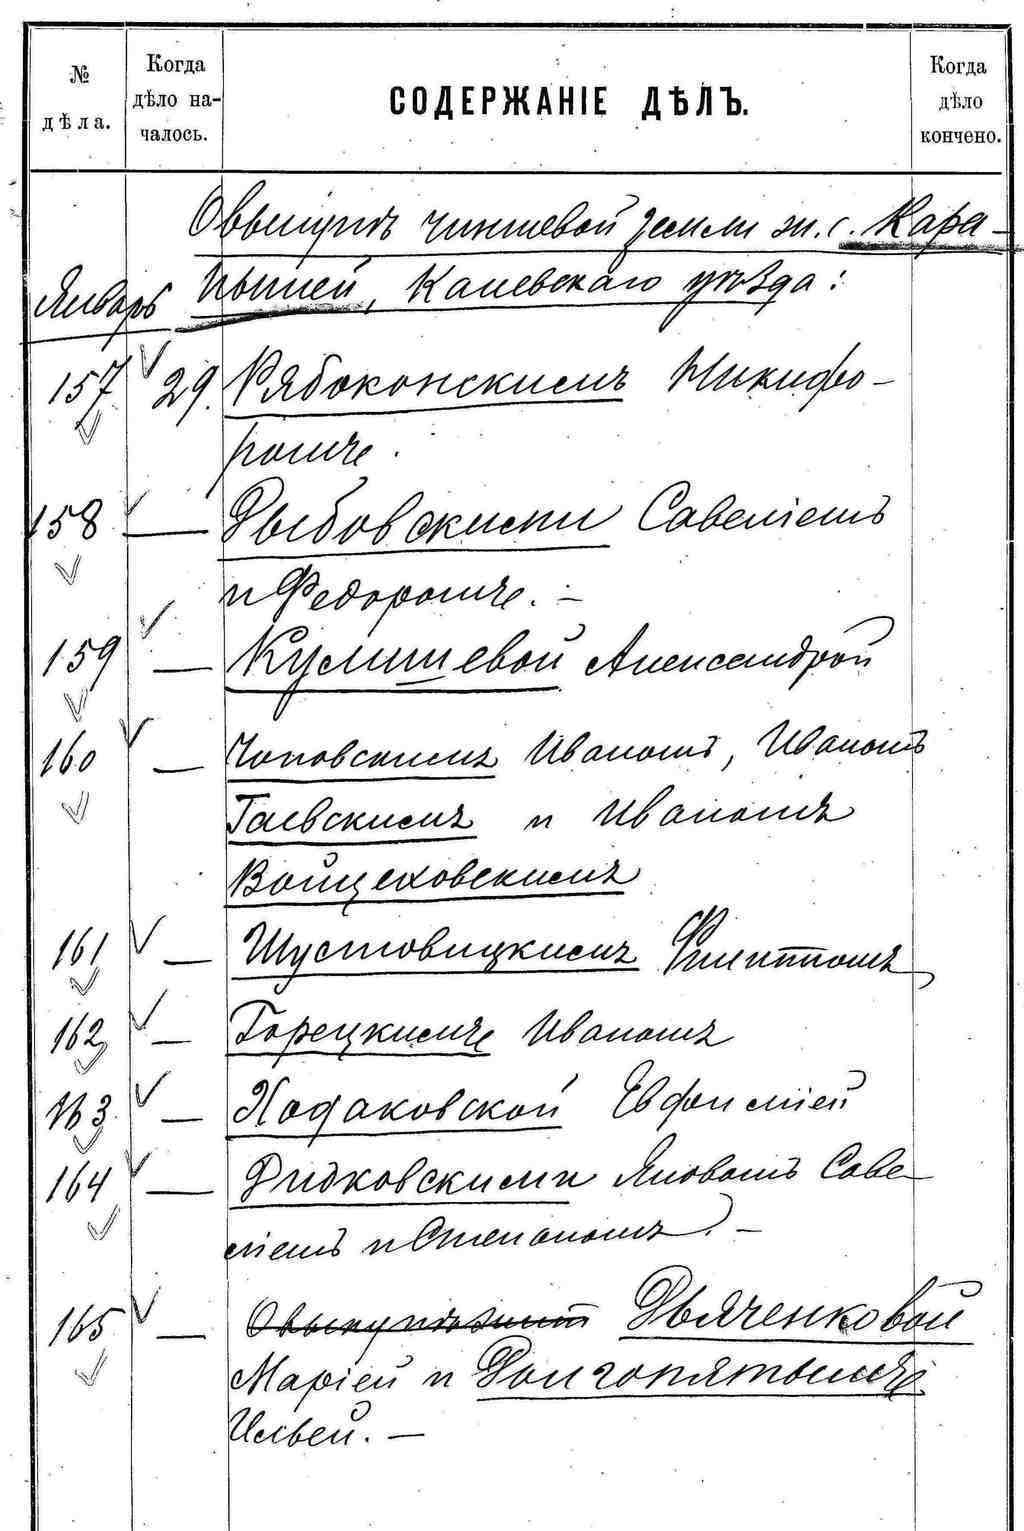 № дѣла.
Когда дѣло началось.
СОДЕРЖАНІЕ ДѢЛЪ.
Когда дѣло кончено.
О выкупѣ чиншевой земли ж. с. Кара-
Январь пышей, Каневскаго уѣзда:
157 29. Рябоконскимъ Никифо-
ромъ.
158 — Дыбовскими Савеліемъ
и Федоромъ. —
159 — Кулишевой Александрой
160 — Чоповскимъ Иваномъ, Иваномъ
Гаевскимъ и Иваномъ
Войцеховскимъ
161 — Шустовицкимъ Филиппомъ
162 — Горецкимъ Иваномъ
163 — Ходаковской Евфиміей
164 — Дидковскими Яковомъ Саве-
ліемъ и Степаномъ. —
165 — О выкупѣ Дьяченковой
Маріей и Долгопятымъ
Ильей. —